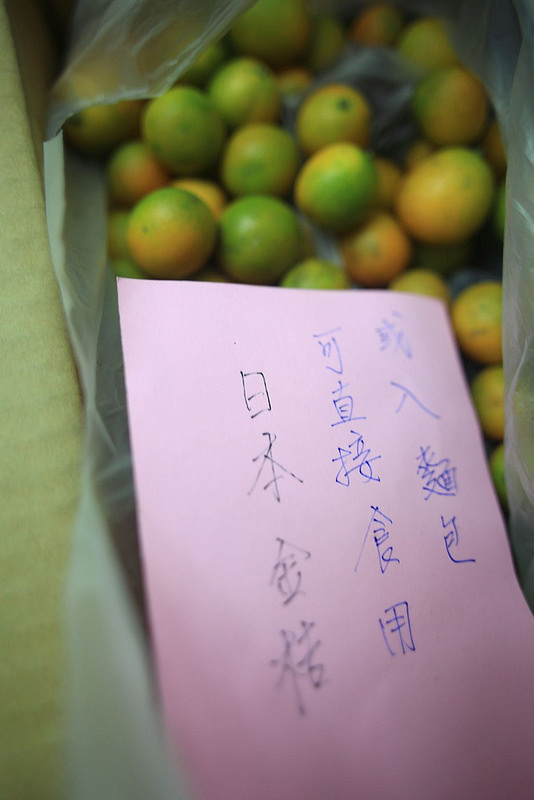 日本金桔
可直接食用
或入麵包